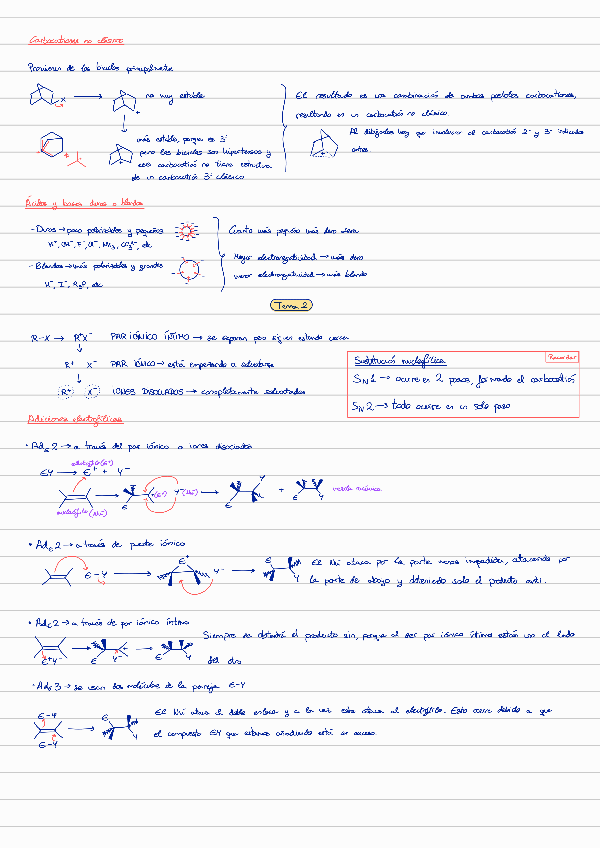 Carbocationes no clásicos
Provienen de los biciclos principalmente
X
no muy estable
+
más estable, porque es 3º
pero los biciclos son hipertensos y
ese carbocatión no tiene estructura
de un carbocatión 3º clásico
El resultado es una combinación de ambos posibles carbocationes,
resultando en un carbocatión no clásico.
Al dibujarlos hay que involucrar el carbocatión 2º y 3º indicados
antes.
Ácidos y bases duros o blandos
- Duros → poco polarizables y pequeños
- Blandos → más polarizables y grandes
H⁻, I⁻, R₃P, etc
Cuanto más pequeño más duro será
Mayor electronegatividad → más duro
menor electronegatividad → más blando
Tema 2
R-X → R⁺X⁻ PAR IÓNICO ÍNTIMO → se separan pero siguen estando cerca
R⁺ X⁻ PAR IÓNICO → está empezando a solvatarse
R⁺ X⁻ IONES DISOCIADOS → completamente solvatados
Sustitución nucleofílica
Recordar
SN1 → ocurre en 2 pasos, formando el carbocatión
SN2 → todo ocurre en un solo paso
Adiciones electrofílicas
• AdE2 → a través del par iónico o iones disociados
electrófilo (E⁺)
EY → E⁺ + Y⁻
nucleófilo (Nu)
(E⁺) Y⁻ (Nu)
E Y + E Y mezcla racémica
• AdE2 → a través de puente iónico
E-Y E⁺ Y⁻ E Y
El Nu ataca por la parte menos impedida, atacando por
la parte de abajo y obteniendo solo el producto anti.
• AdE2 → a través de par iónico íntimo
E⁺Y⁻ E Y⁻ E Y
Siempre se obtendrá el producto sin, porque al ser par iónico íntimo están uno al lado
del otro
• AdE3 → se usan dos moléculas de la pareja E-Y
E-Y
E-Y
E Y
El Nu ataca al doble enlace y a la vez este ataca al electrófilo. Esto ocurre debido a que
el compuesto EY que estamos añadiendo está en exceso